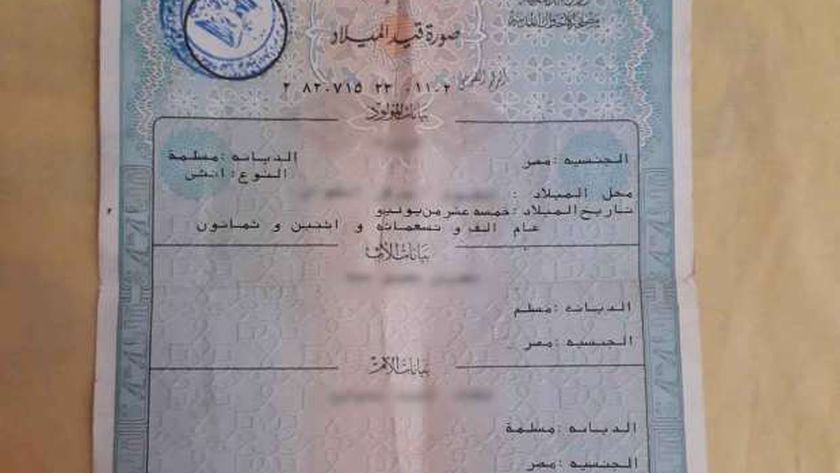 مصلحة الأحوال المدنية
صورة قيد الميلاد
الرقم القومى ٢ ٨٢٠٧١٥ ٢٣ ٠١١٠٢
بيانات المولود
الجنسيه :مصر الديانه :مسلمة
النوع :انثى
محل الميلاد :
تاريخ الميلاد :خمسه عشر من يوليو
عام الف و تسعمائه و اثنين و ثمانون
بيانات الأب
الديانه :مسلم
الجنسيه :مصر
بيانات الأم
الديانه :مسلمة
الجنسيه :مصر